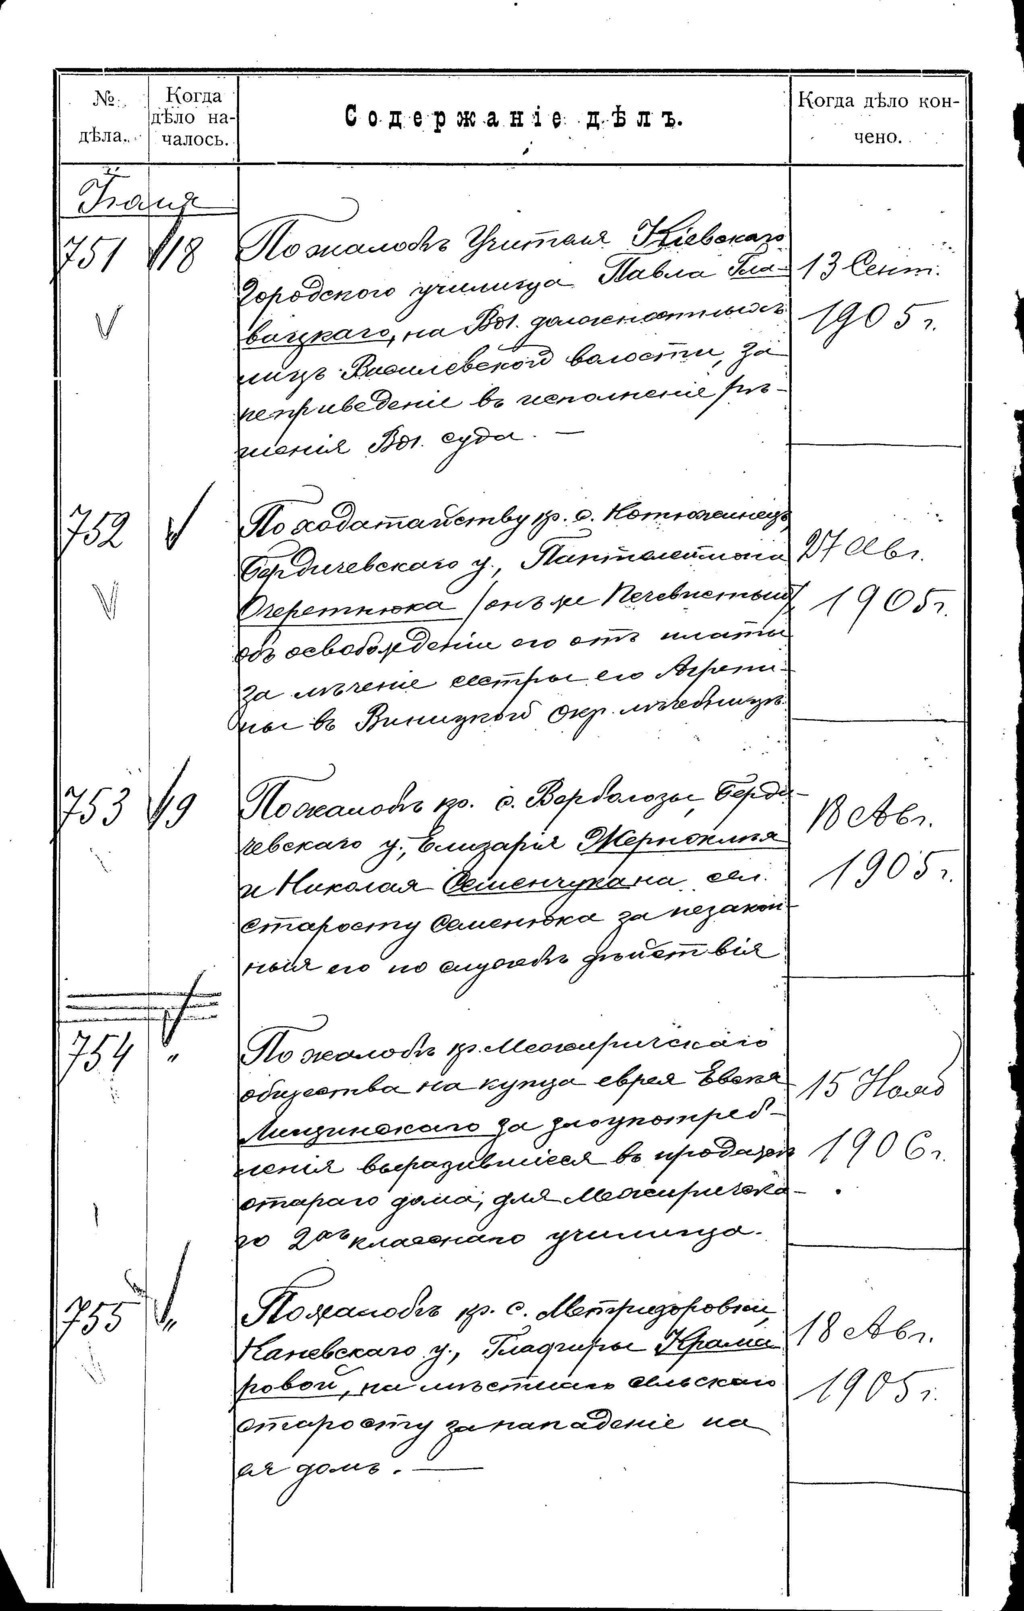 № дѣла.
Когда дѣло началось.
Содержаніе дѣлъ.
Когда дѣло кончено.
751 18
По жалобѣ Учителя Кіевскаго
Городского училища Павла Гла-
вацкаго, на Вол. должностныхъ
лицъ Василевской волости, за
неприведеніе въ исполненіе рѣ-
шенія Вол. суда. —
13 Сент.
1905 г.
752
По ходатайству кр. с. Котюжинецъ
Бердичевскаго у., Пантелеймона
Очеретнюка /онъ же Нечевистый/
объ освобожденіи его отъ платы
за лѣченіе сестры его Агрепи-
ны въ Виницкой Окр. лѣчебницѣ.
27 Авг.
1905 г.
753 19
По жалобѣ кр. с. Вербологы, Берди-
чевскаго у., Елизарія Жерноклея
и Николая Семенчука на сел.
старосту Семенюка за незакон-
ныя его по службѣ дѣйствія
18 Авг.
1905 г.
754 "
По жалобѣ кр. Межиричскаго
общества на купца еврея
за злоупотреб-
ленія выразившіеся въ продажѣ
стараго дома, для Межиричска-
го 2хъ класснаго училища.
15 Нояб
1906 г.
755 "
По жалобѣ кр. с.
Каневскаго у., Крама-
ровой, на мѣстнаго сельскаго
старосту за нападеніе на
ея домъ. —
18 Авг.
1905 г.